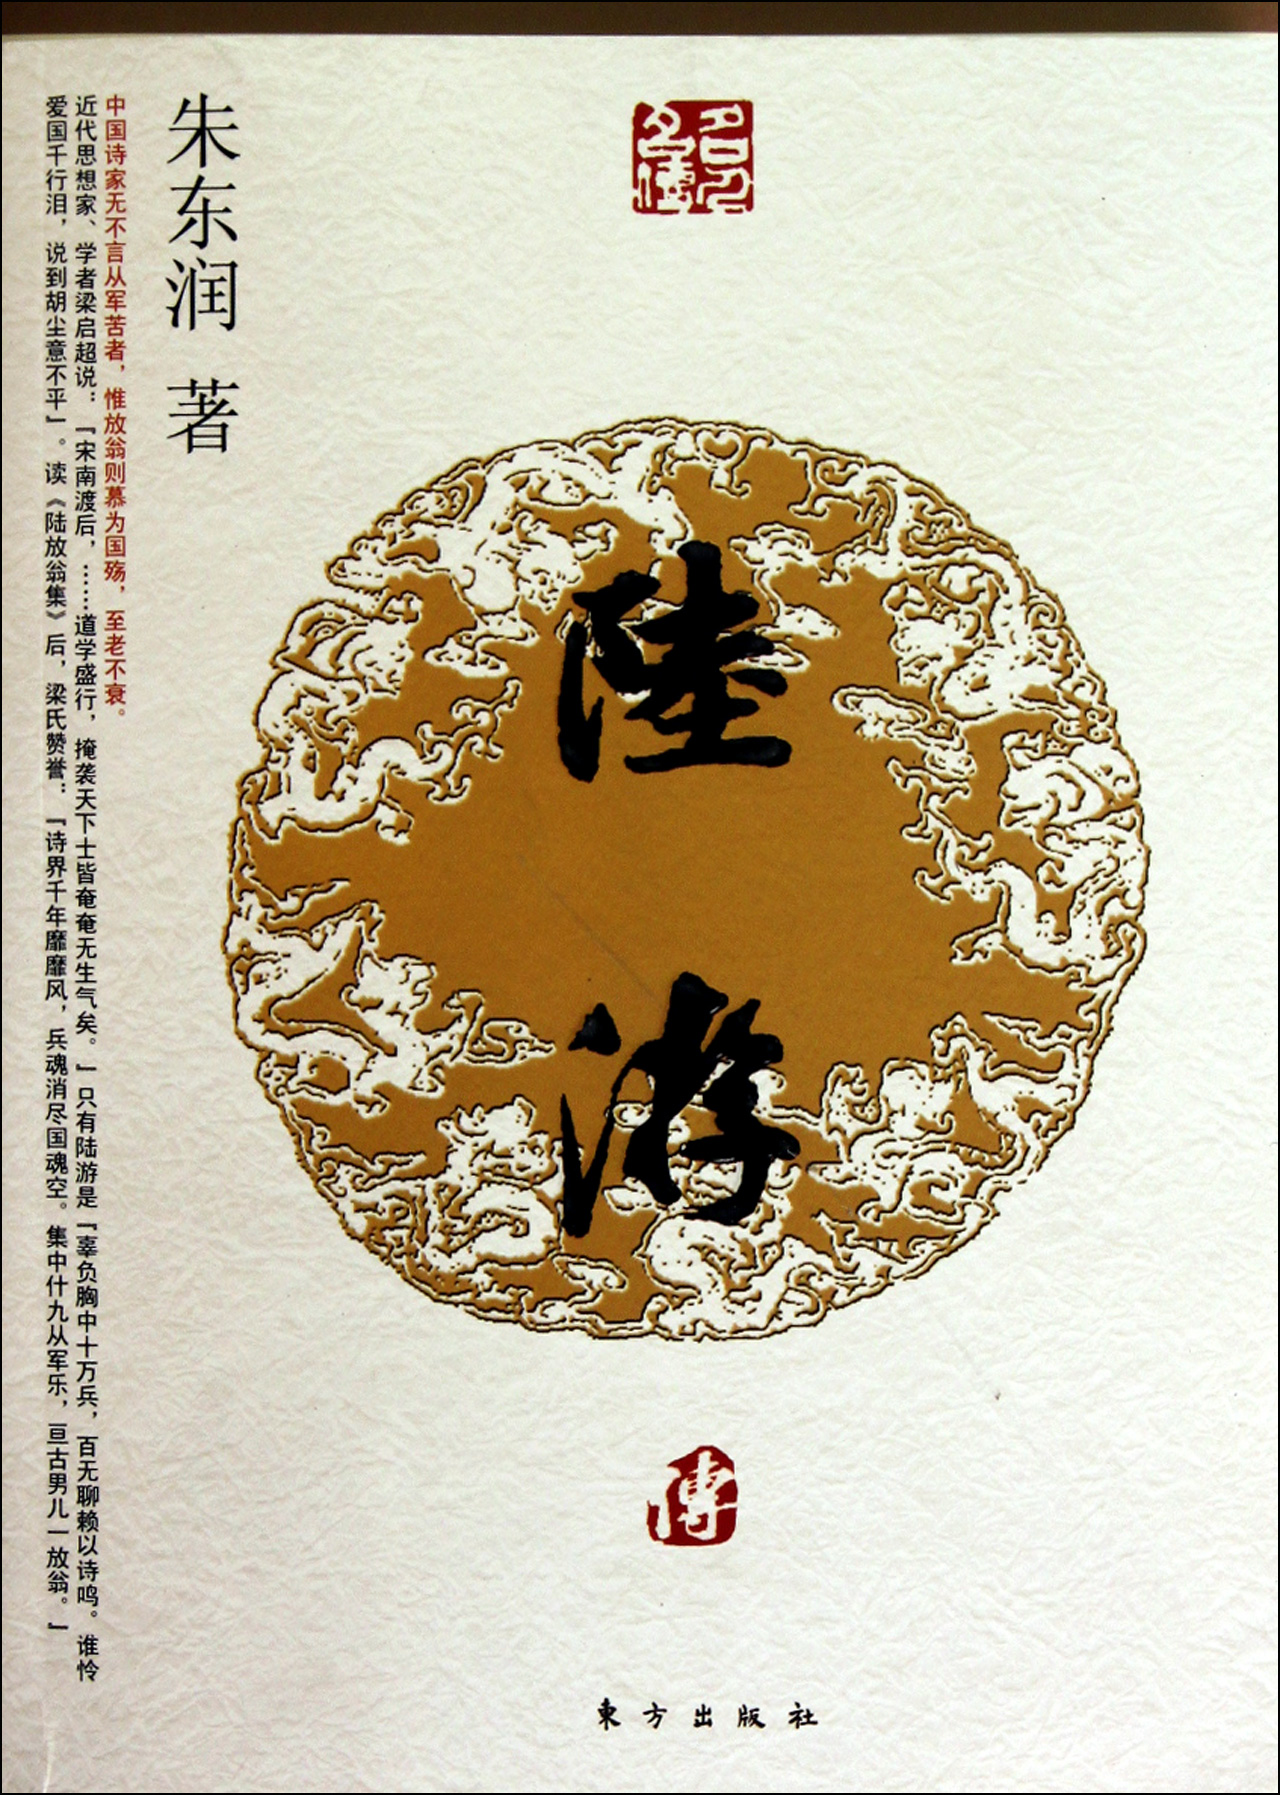 名家
名傳
陸游
傳
朱东润 著
中国诗家无不言从军苦者，惟放翁则慕为国殇，至老不衰。
近代思想家、学者梁启超说：『宋南渡后，……道学盛行，掩袭天下士皆奄奄无生气矣。』只有陆游是『辜负胸中十万兵，百无聊赖以诗鸣。谁怜
爱国千行泪，说到胡尘意不平』。读《陆放翁集》后，梁氏赞誉：『诗界千年靡靡风，兵魂消尽国魂空。集中什九从军乐，亘古男儿一放翁。』
東方出版社